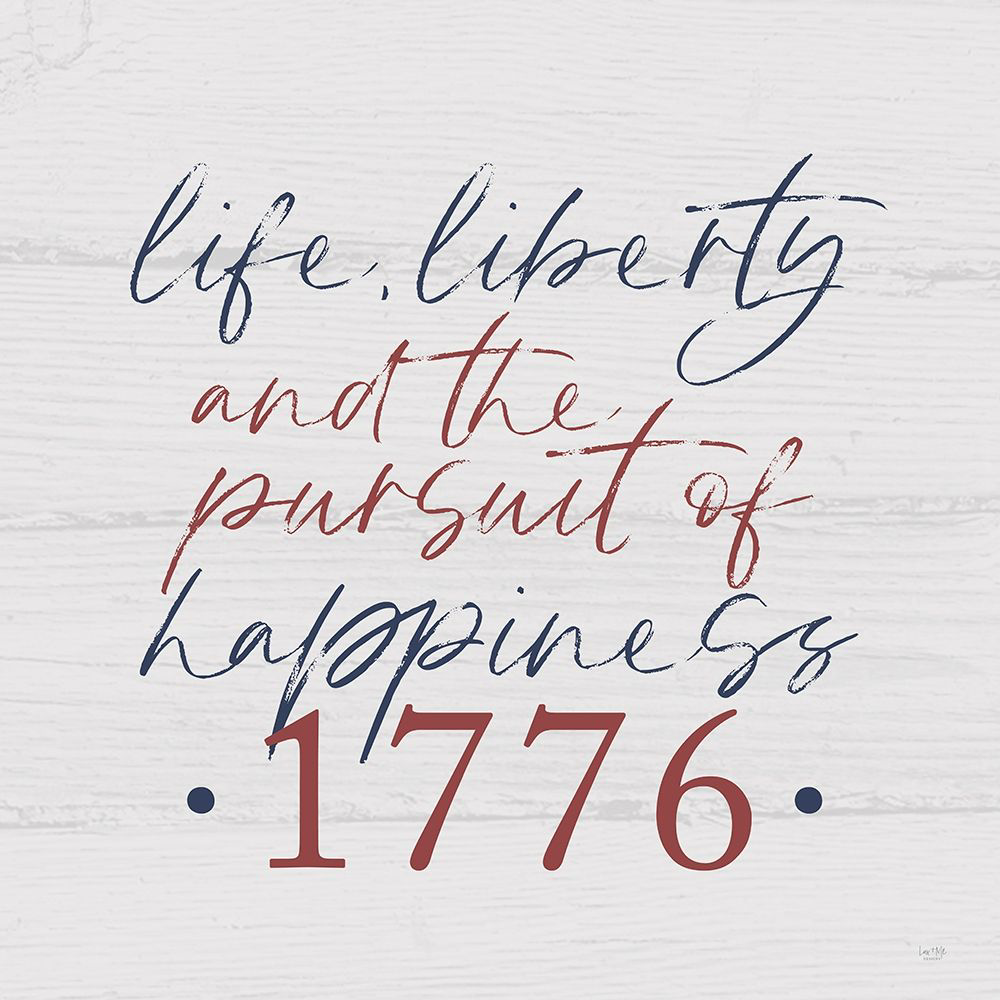 life, liberty
and the
pursuit of
happiness
• 1776 •
Lux + Me
DESIGNS